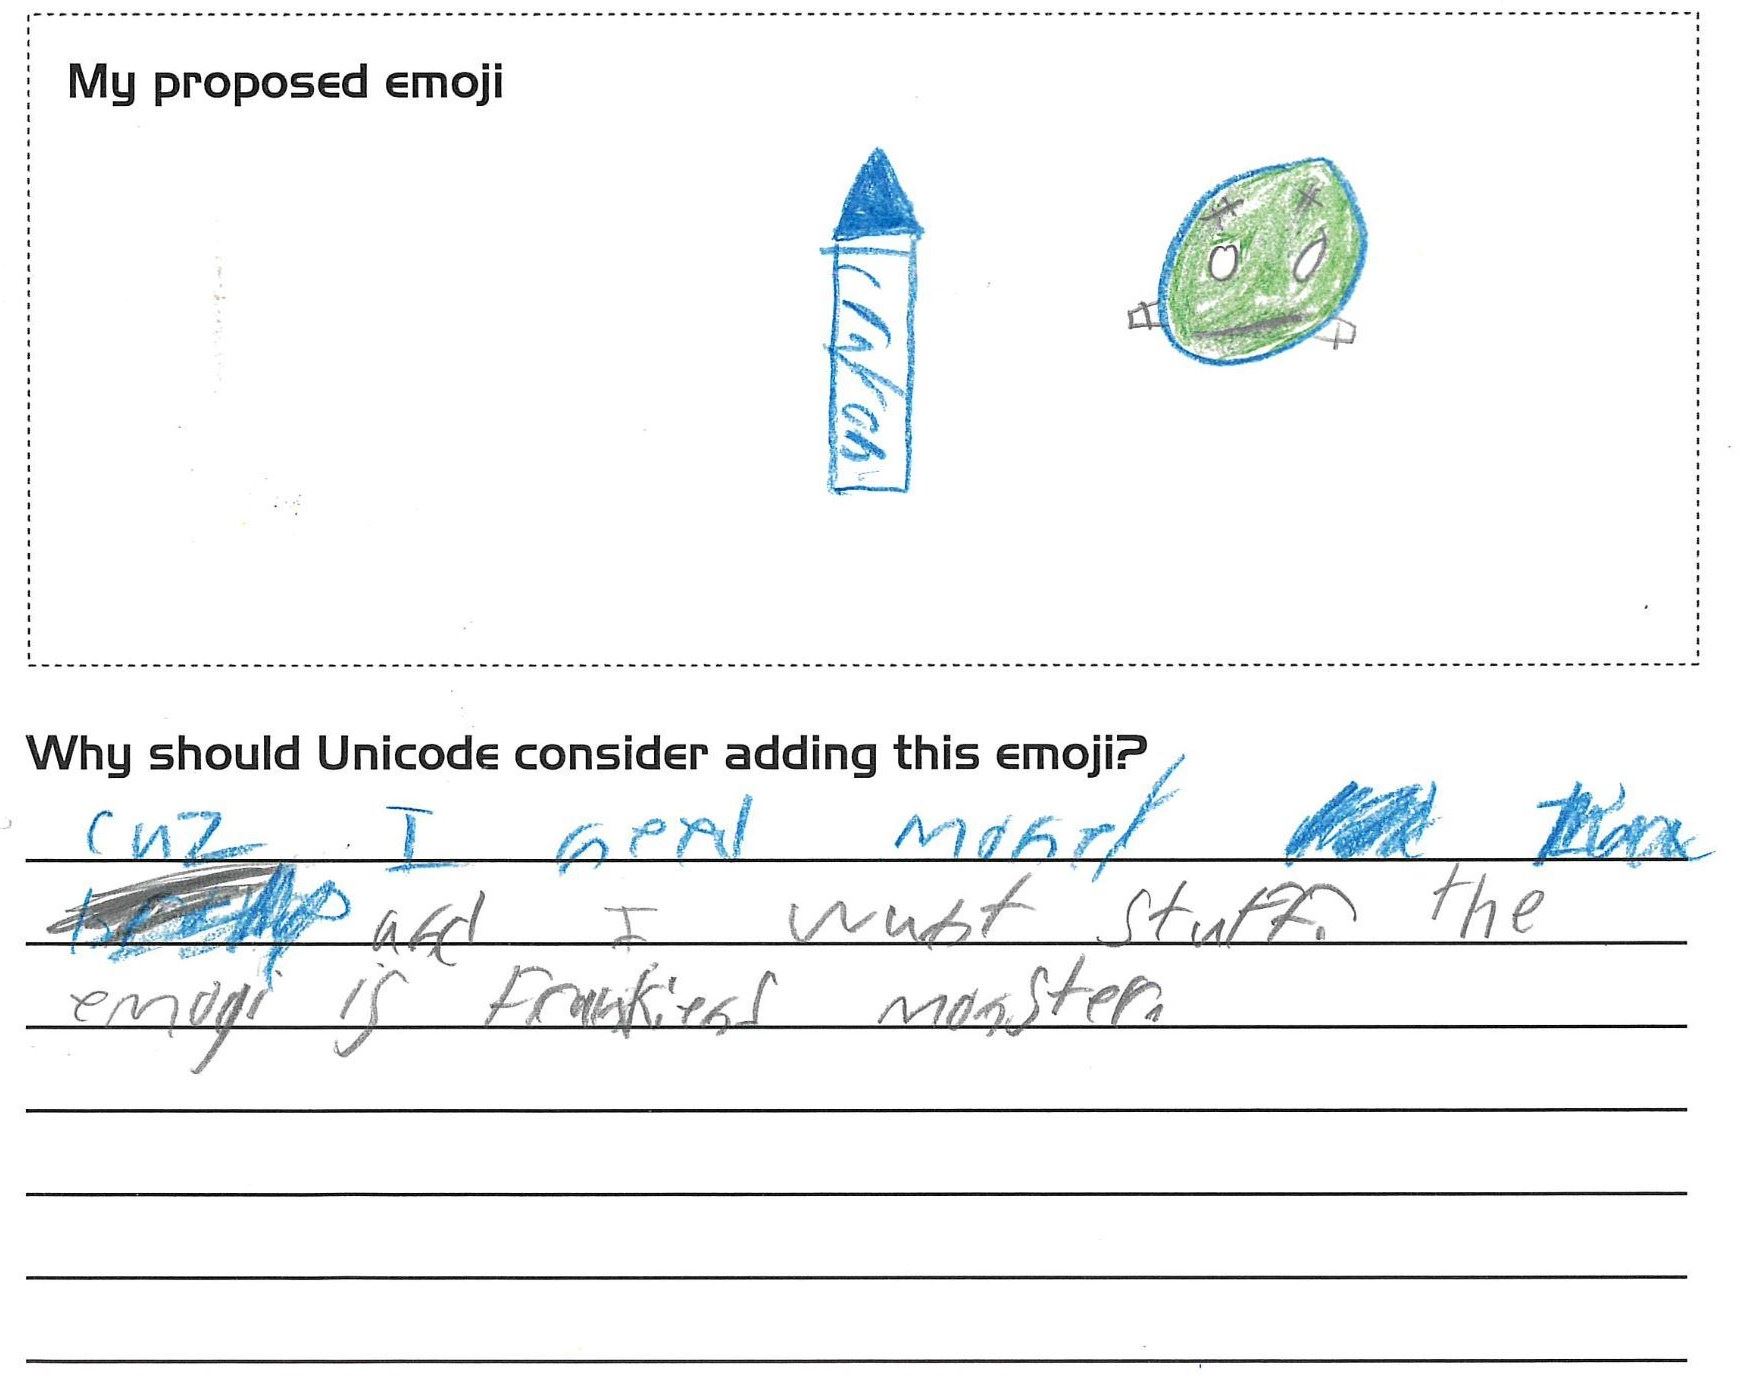 My proposed emoji
Why should Unicode consider adding this emoji?
cuz I need money
and I wunt stuff. the
emogi is Frankiens monster.